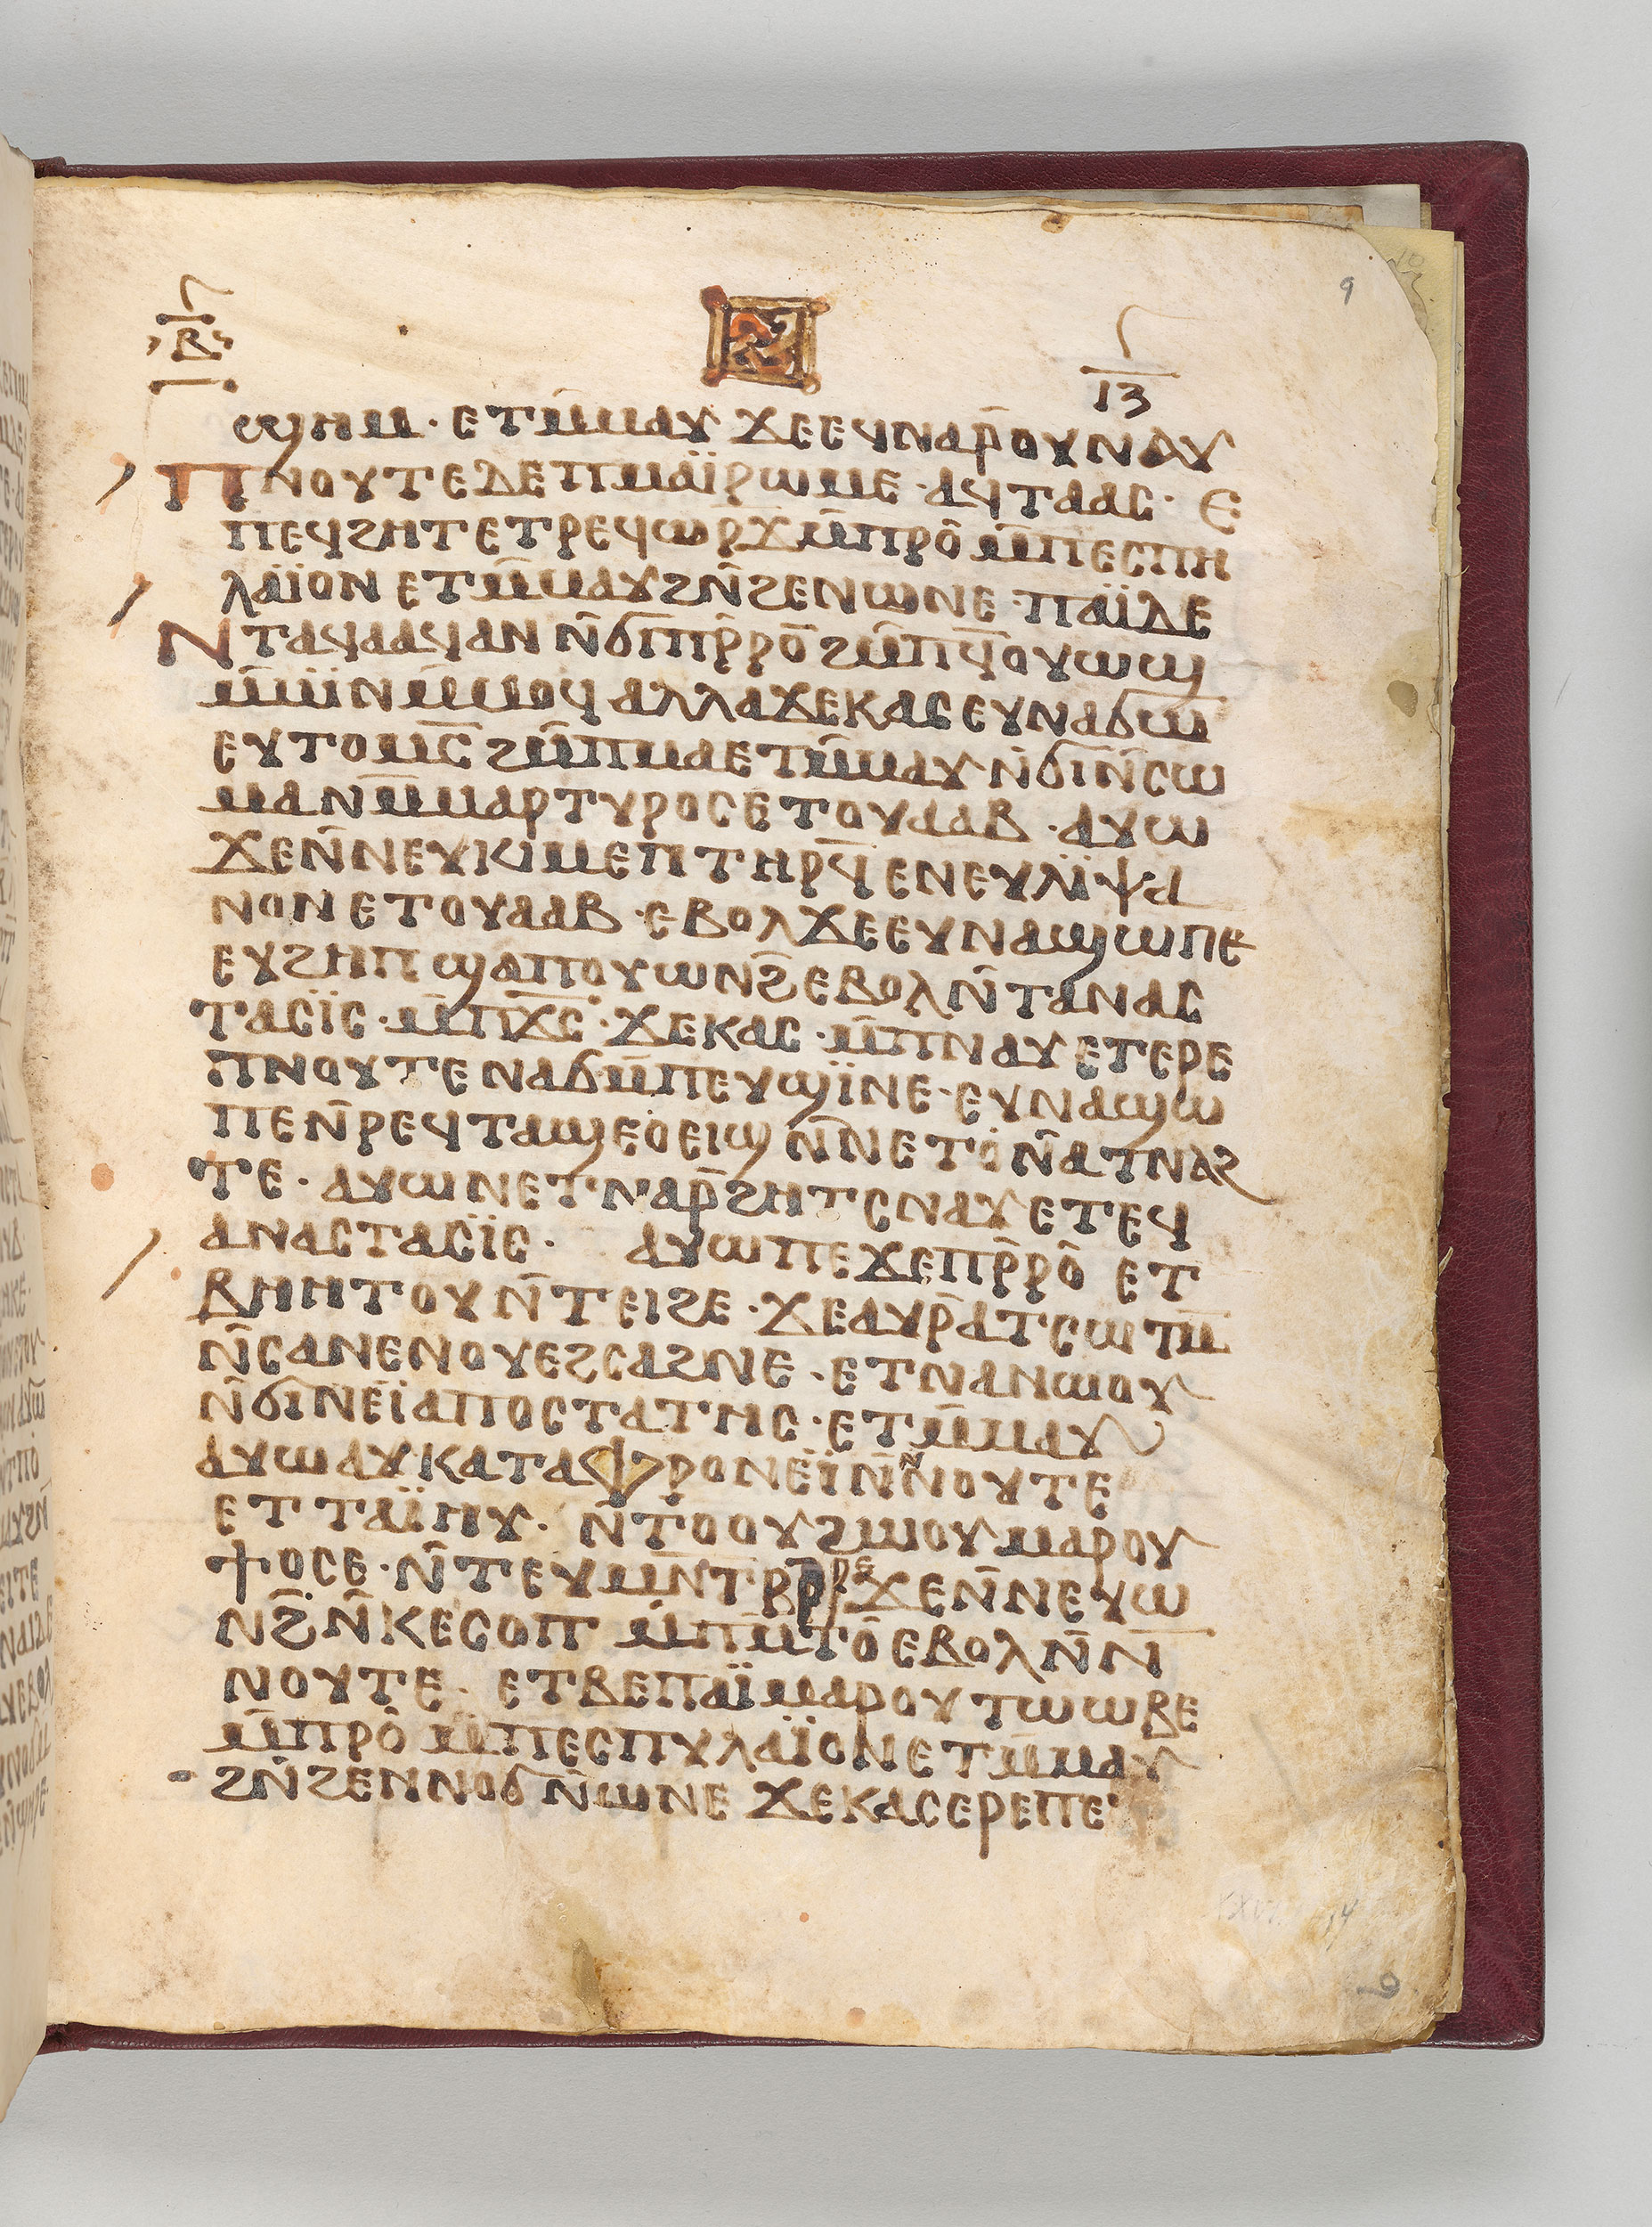 ⲃ̅
ⲓⲍ
9
ϣⲏⲙ · ⲉⲧⲙ̅ⲙⲁⲩ ϫⲉⲉϥⲛⲁⲣ̅ⲟⲩⲛⲁⲩ
ⲡⲛⲟⲩⲧⲉⲇⲉⲡⲙⲁⲓ̈ⲣⲱⲙⲉ · ⲁϥⲧⲁⲁⲥ · ⲉ
ⲡⲉϥϩⲏⲧ ⲉⲧⲣⲉϥⲱⲣϫ̅ⲙ̅ⲡⲣⲟ̅ ⲙ̅ⲡⲉⲥⲡⲏ
ⲗⲁⲓ̈ⲟⲛ ⲉⲧⲙ̅ⲙⲁⲩϩⲛ̅ϩⲉⲛⲱⲛⲉ · ⲡⲁⲓ̈ⲇⲉ
ⲛⲧⲁϥⲁⲁϥⲁⲛ ⲛ̅ϭⲓⲡⲣ̅ⲣⲟ̅ ϩⲙ̅ⲡϥ̅ⲟⲩⲱϣ
ⲙ̅ⲙⲓ̈ⲛⲙ̅ⲙⲟϥ ⲁⲗⲗⲁϫⲉⲕⲁⲥ ⲉⲩⲛⲁϭⲱ̅
ⲉⲩⲧⲟⲙⲥ̅ ϩⲙ̅ⲡⲙⲁⲉⲧⲙ̅ⲙⲁⲩ ⲛ̅ϭⲓⲛ̅ⲥⲱ
ⲙⲁⲛⲙ̅ⲙⲁⲣⲧⲩⲣⲟⲥⲉⲧⲟⲩⲁⲁⲃ · ⲁⲩⲱ
ϫⲉⲛ̅ⲛⲉⲩⲕⲓⲙⲉⲡⲧⲏⲣϥ̅ ⲉⲛⲉⲩⲗⲓ̈ⲯⲁ
ⲛⲟⲛⲉⲧⲟⲩⲁⲁⲃ · ⲉⲃⲟⲗϫⲉⲉⲩⲛⲁϣⲱⲡⲉ
ⲉⲩϩⲏⲡϣⲁⲡⲟⲩⲱⲛϩ̅ⲉⲃⲟⲗⲛ̅ⲧⲁⲛⲁⲥ
ⲧⲁⲥⲓ̈ⲥ · ⲙ̅ⲡⲭ̅ⲥ̅ · ϫⲉⲕⲁⲥ · ⲙ̅ⲡⲛⲁⲩ ⲉⲧⲉⲣⲉ
ⲡⲛⲟⲩⲧⲉ ⲛⲁϭⲙ̅ⲡⲉⲩϣⲓ̈ⲛⲉ · ⲉⲩⲛⲁϣⲱ
ⲡⲉⲛ̅ⲣⲉϥⲧⲁϣⲉⲟⲉⲓϣ ⲛ̅ⲛⲉⲧⲟ ⲛ̅ⲁⲧⲛⲁϩ
ⲧⲉ · ⲁⲩⲱⲛⲉⲧⲛⲁⲣ̅ϩⲏⲧⲥⲛⲁⲩ ⲉⲧⲉϥ
ⲁⲛⲁⲥⲧⲁⲥⲓ̈ⲥ · ⲁⲩⲱⲡⲉϫⲉⲡⲣ̅ⲣⲟ̅ ⲉⲧ
ⲃⲏⲏⲧⲟⲩⲛ̅ⲧⲉⲓϩⲉ · ϫⲉⲁⲩⲣ̅ⲁⲧⲥⲱⲧⲙ̅
ⲛ̅ⲥⲁⲛⲉⲛⲟⲩⲉϩⲥⲁϩⲛⲉ · ⲉⲧⲛⲁⲛⲟⲩⲟⲩ
ⲛ̅ϭⲓⲛⲉⲓ̈ⲁⲡⲟⲥⲧⲁⲧⲏⲥ · ⲉⲧⲙ̅ⲙⲁⲩ
ⲁⲩⲱⲁⲩⲕⲁⲧⲁⲫⲣⲟⲛⲉⲓ̈ⲛ̅ⲛⲛⲟⲩⲧⲉ
ⲉⲧⲧⲁⲓ̈ⲏⲩ · ⲛ̅ⲧⲟⲟⲩϩⲱⲟⲩ ⲙⲁⲣⲟⲩ
ϯⲟⲥⲉ · ⲛ̅ⲧⲉⲩⲙⲛ̅ⲧⲣ̅ⲣⲣⲉϫⲉⲛ̅ⲛⲉⲩⲱ
ⲛϩ̅ⲛ̅ⲕⲉⲥⲟⲡ ⲙ̅ⲡⲙ̅ⲧⲟ̅ ⲉⲃⲟⲗⲛ̅ⲛ̅
ⲛⲟⲩⲧⲉ · ⲉⲧⲃⲉⲡⲁⲓ̈ ⲙⲁⲣⲟⲩⲧⲱⲱⲃⲉ
ⲙ̅ⲡⲣⲟ̅ ⲙ̅ⲡⲉⲥⲡⲩⲗⲁⲓ̈ⲟⲛⲉⲧⲙ̅ⲙⲁⲩ
ϩⲛ̅ϩⲉⲛⲛⲟϭⲛ̅ⲱⲛⲉ ϫⲉⲕⲁⲥⲉⲣⲉⲡⲉ